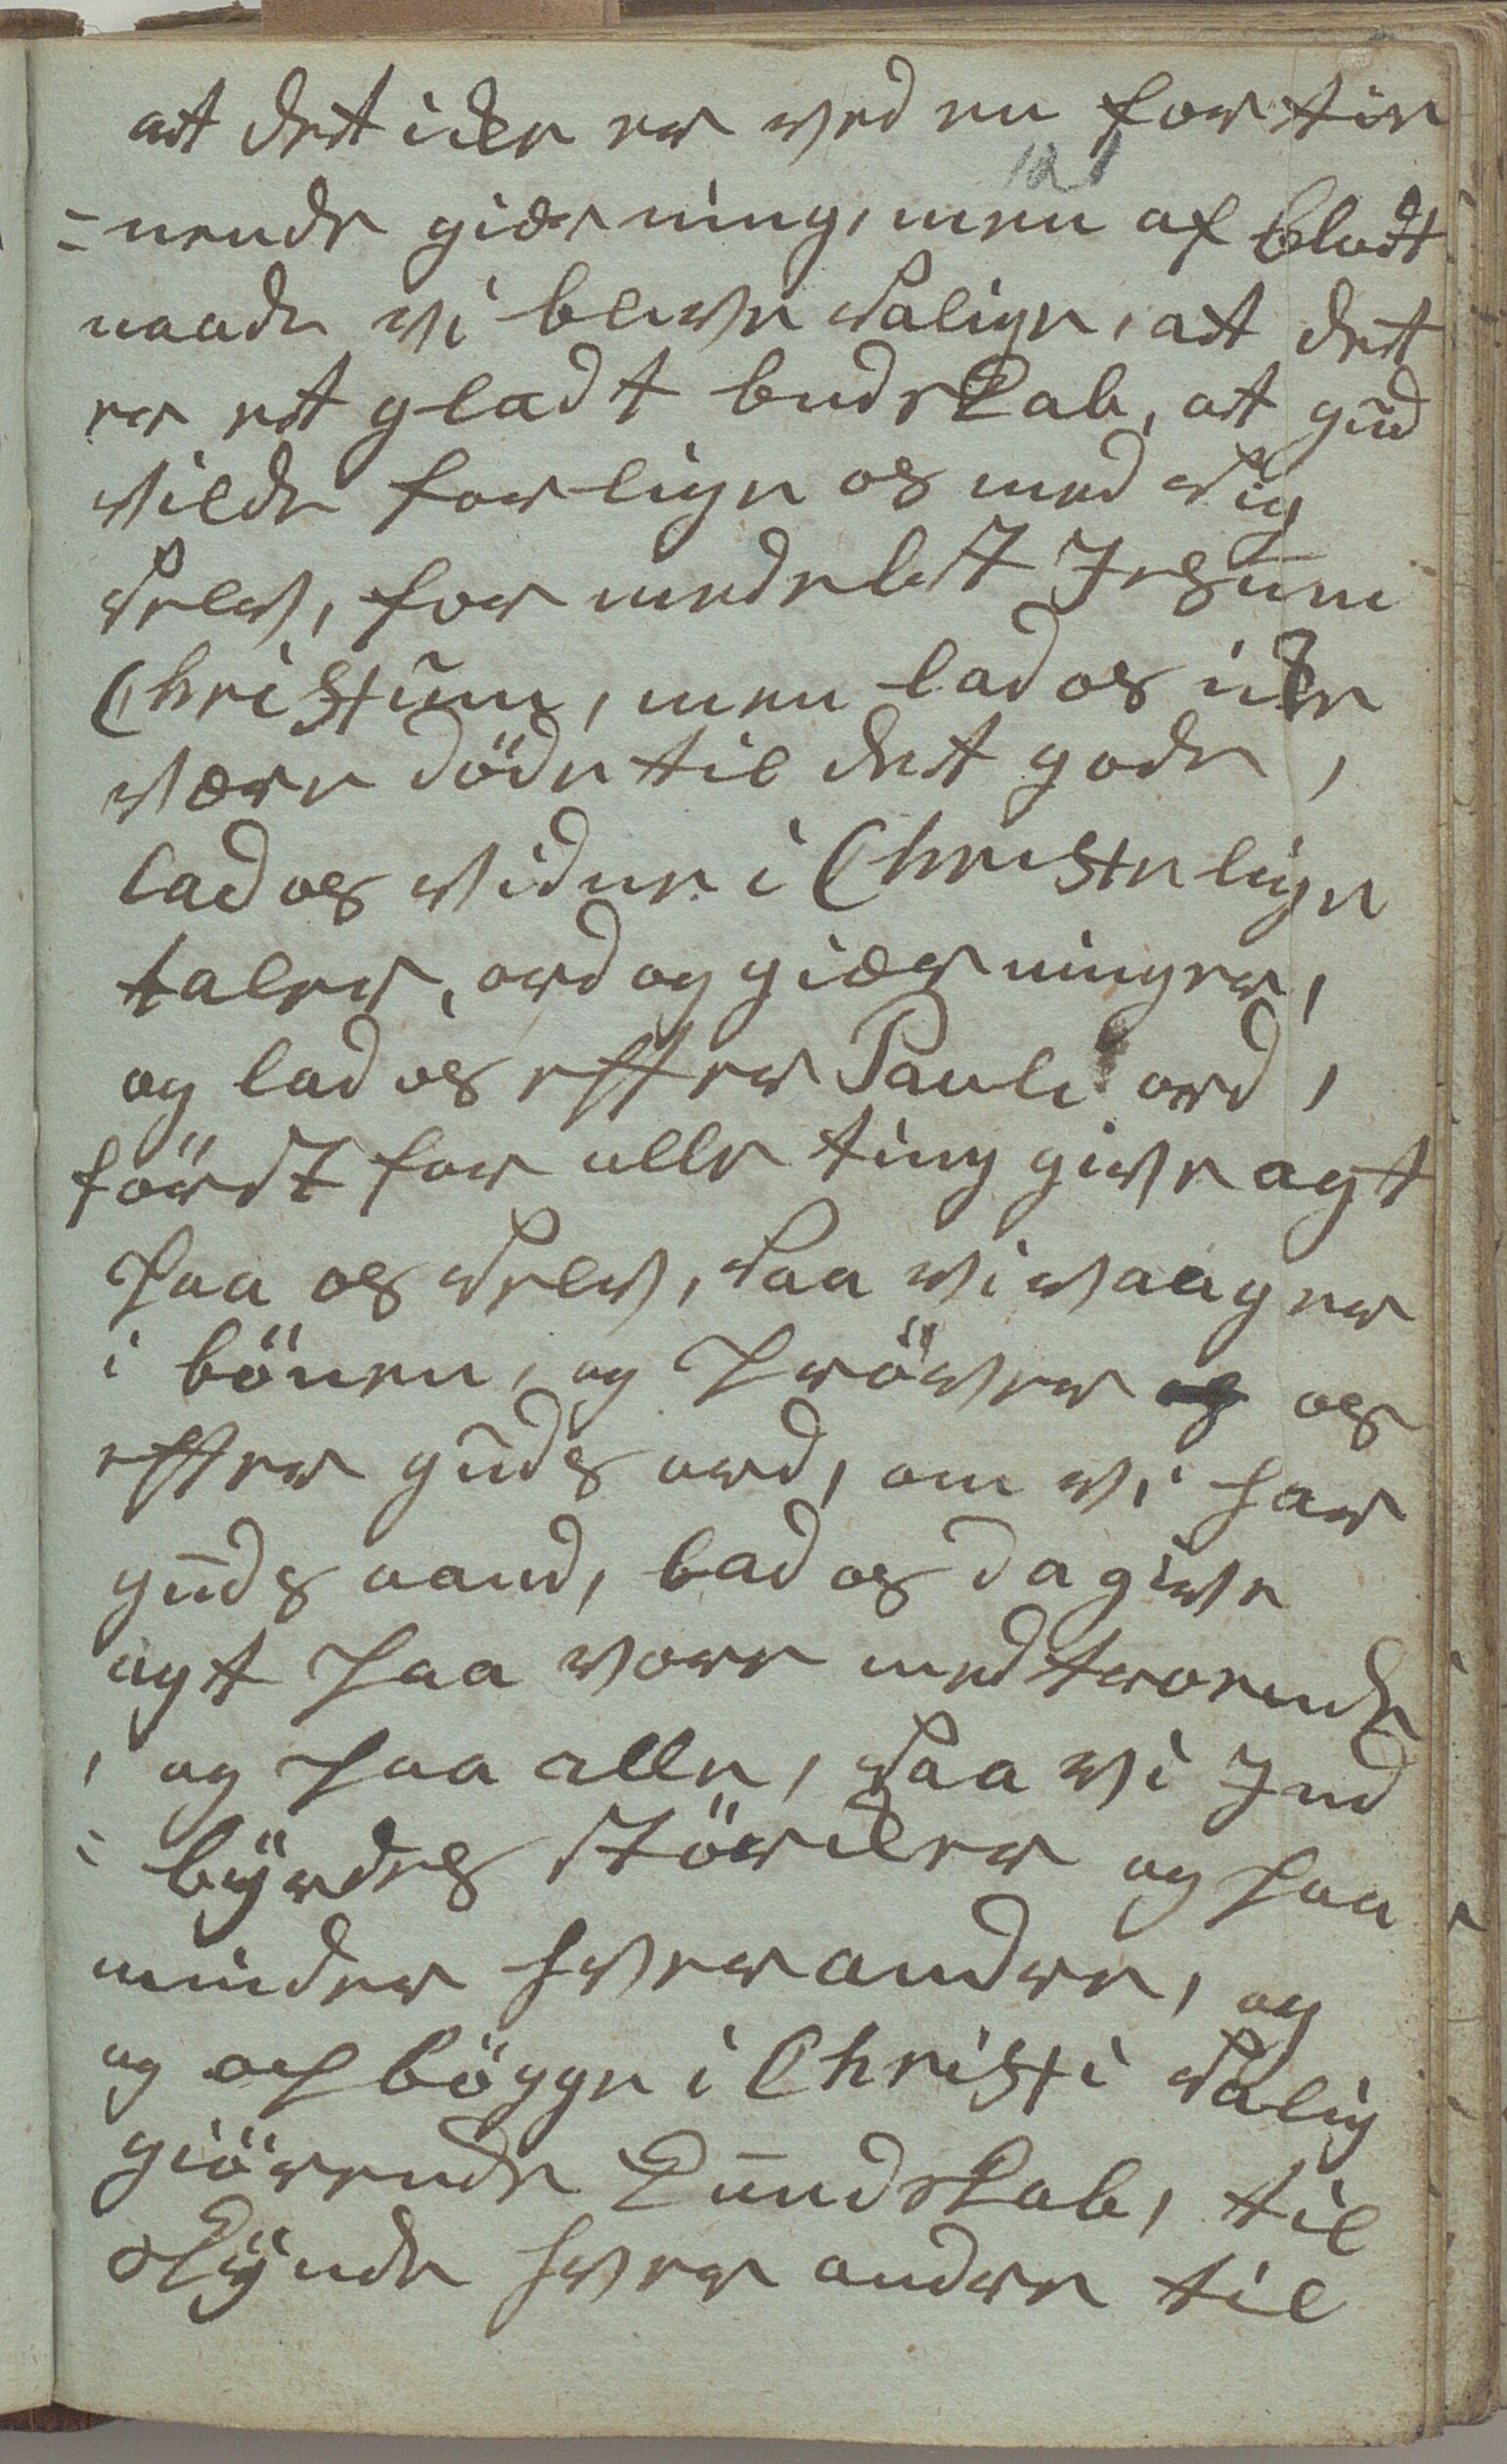 at det ikke er ved en fortie
=nende giærning, men af blodt
naade vi blive salige, at det
er et gladt budskab, at gud
vilde forlige os med sig
selv, formedelst Jesum
Christum, men lad os ikke
være döde til det gode,
lad os vidne i Christelige
taler, ord og giærninger,
og lad os efter Pauli ord,
först for alle ting give agt
paa os selv, saa vi vaager
i bönen, og pröver os
efter guds ord, om vi har
guds aand, lad os da give
agt paa vore medtroende
, og paa alle, saa vi Ind
=byrdes störker og paa
minder hverandre, og
og opbögge i Christi salig
giörende kundskab, til
skÿnde hverandre til